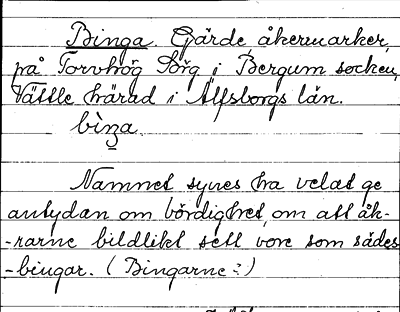 Binga. Gärde, åkermarker,
på Torvhög Sörg i Bergum socken,
Vättle härad i Älfsborgs län.
bìnа.
Namnet synes ha velat ge
antydan om bördighet, om att åk-
-rarne bildlikt sett vore som sädes
-bingar. (Bingarne?)